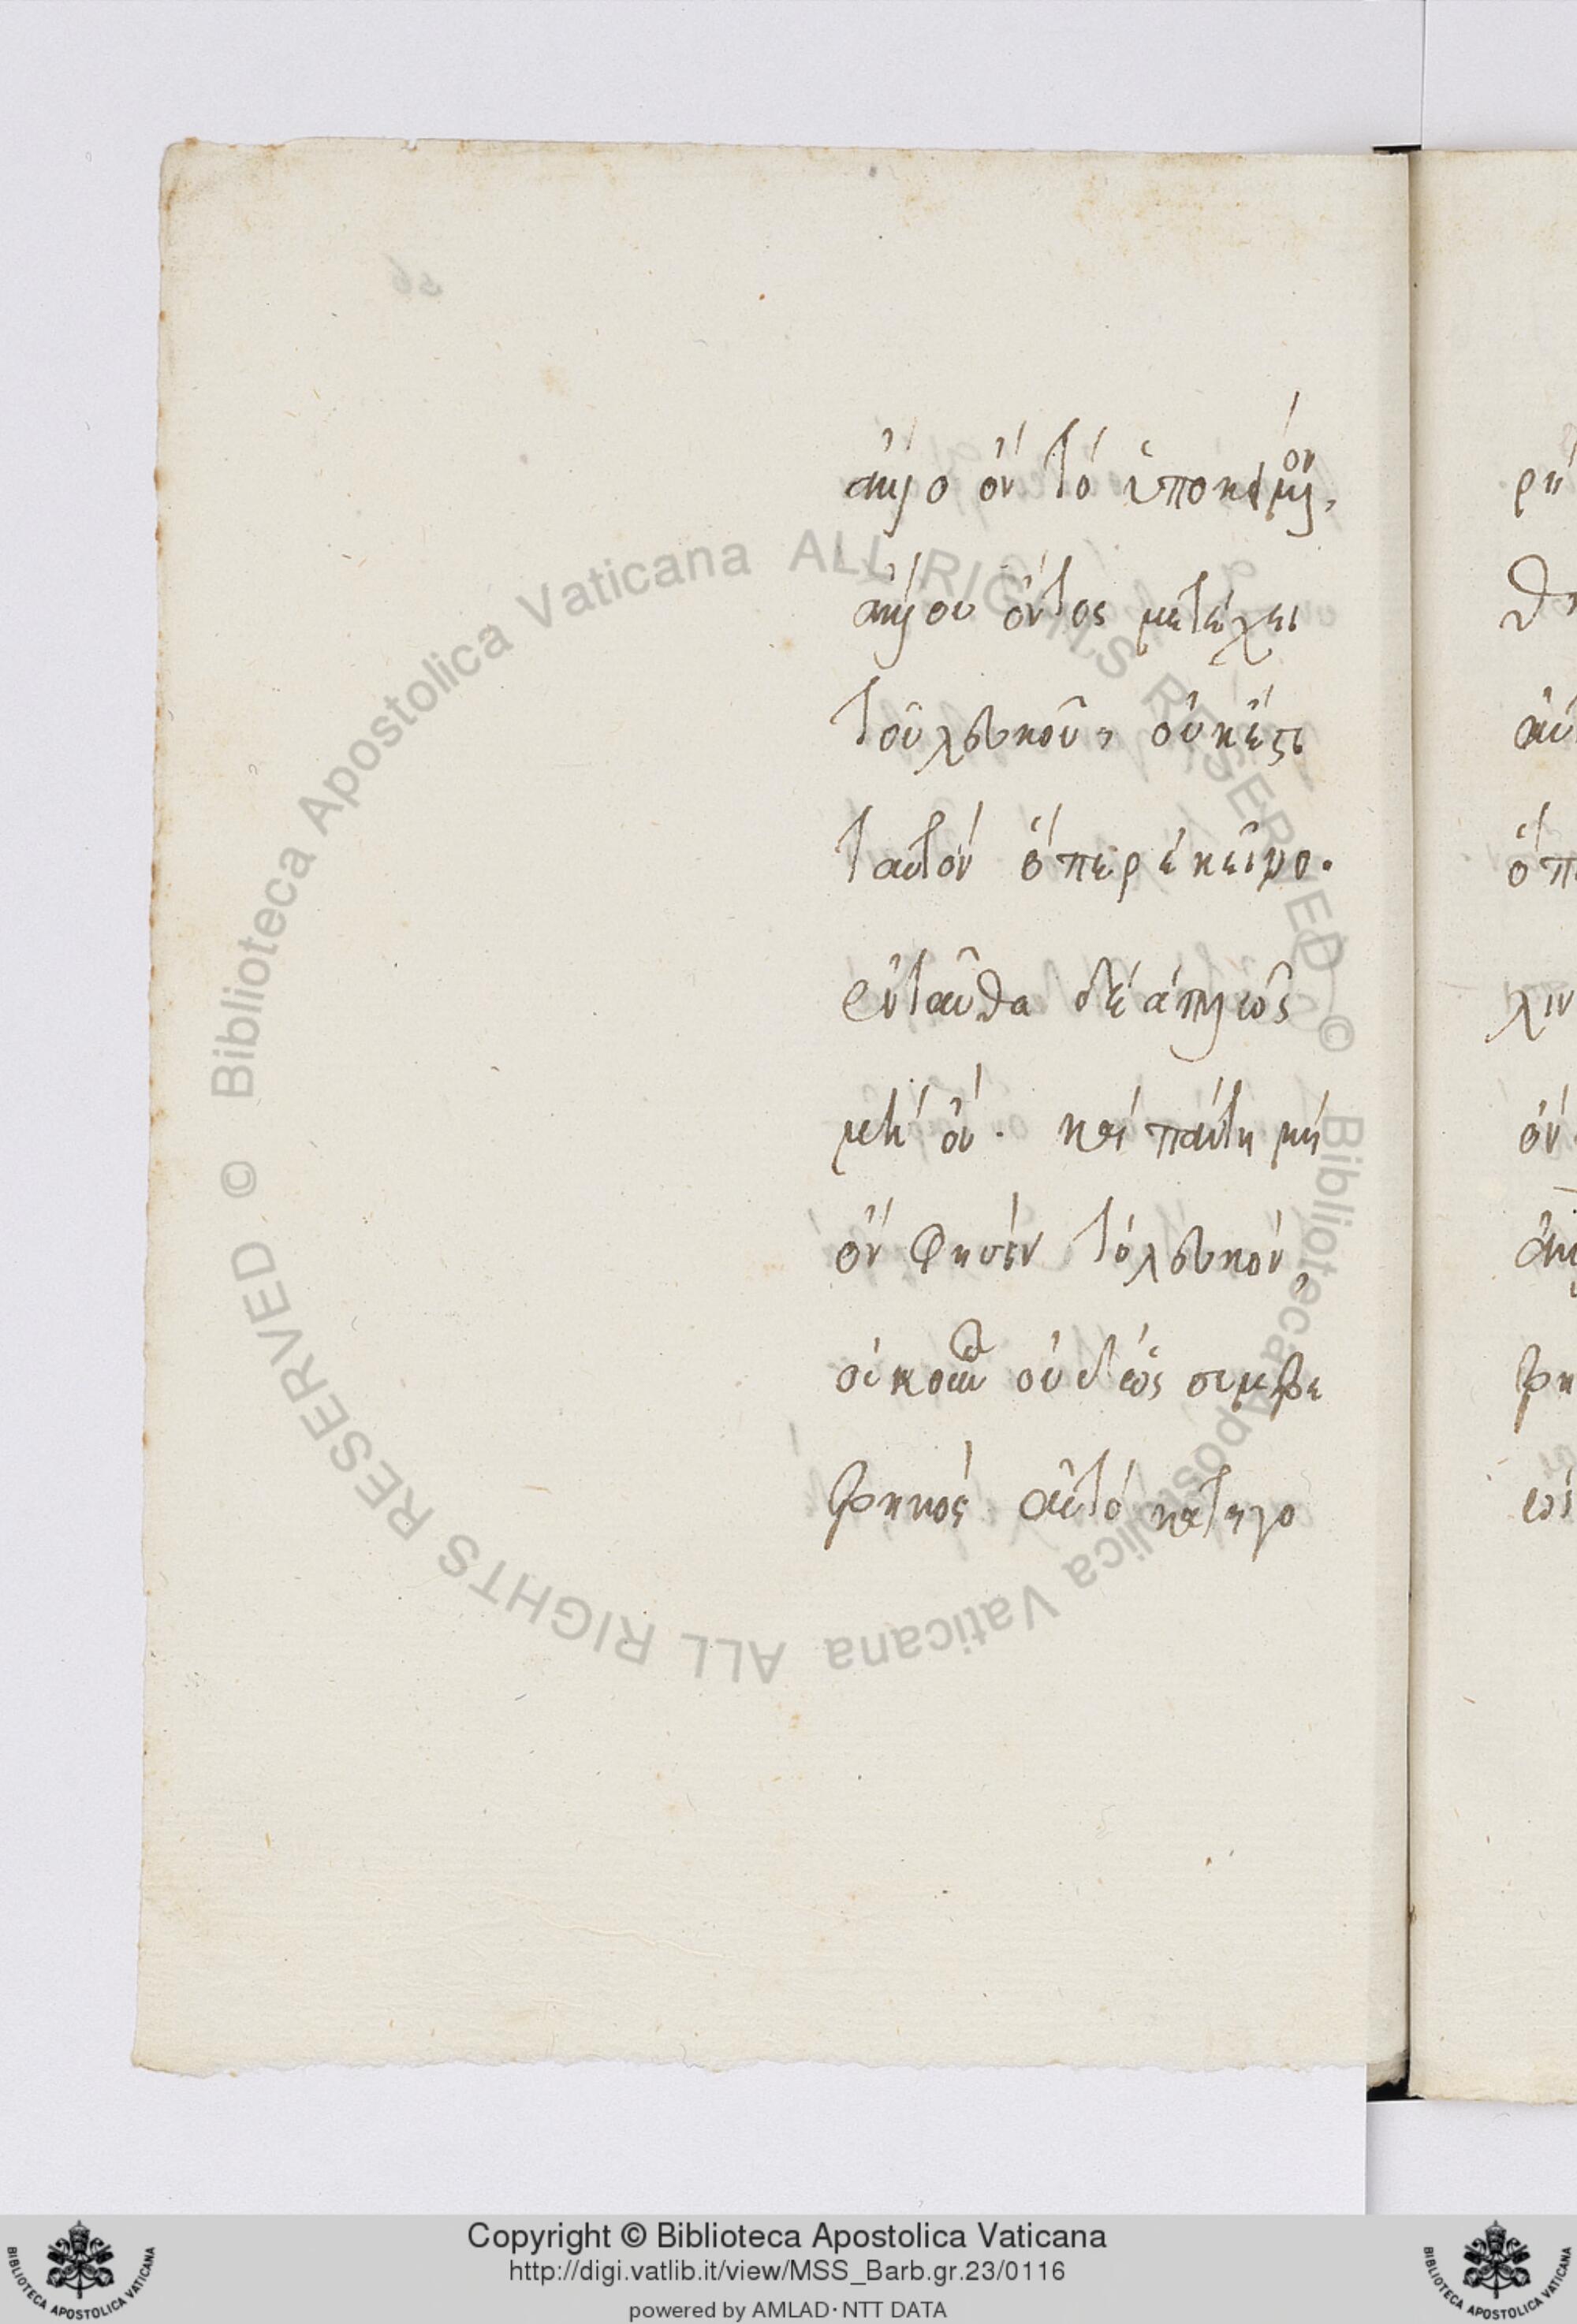 ἄλλο ὂν τὸ ὑποκείμενον,
ἄλλου ὄντος μετέχει
τοῦ λευκοῦ, οὐκ ἔστι
ταυτὸν ὅπερ ἐκεῖνο.
ἐνταῦθα δὲ ἁπλῶς
μὴ ὄν. καὶ πάντη μὴ
ὄν φησιν τὸ λευκόν,
οὐδὲ ὡς συμβε
βηκὸς αὐτὸ κατηγο
ρη
θη
αὐ
ὅπ
λιν
ὄν
βη
Biblioteca Apostolica Vaticana ALL RIGHTS RESERVED ©
Biblioteca Apostolica Vaticana ALL RIGHTS RESERVED ©
Copyright © Biblioteca Apostolica Vaticana
http://digi.vatlib.it/view/MSS_Barb.gr.23/0116
powered by AMLAD·NTT DATA
BIBLIOTECA APOSTOLICA VATICANA
BIBLIOTECA APOSTOLICA VATICANA